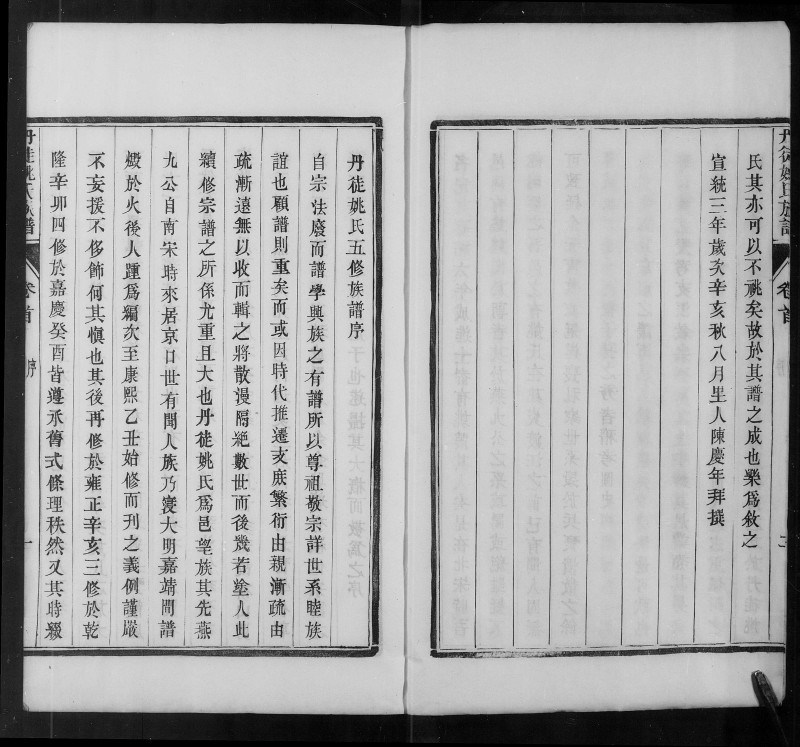 丹徒姚氏族譜
卷首
二
氏其亦可以不祧矣故於其譜之成也樂爲敘之
宣統三年歲次辛亥秋八月里人陳慶年拜撰
丹徒姚氏五修族譜序
自宗法廢而譜學興族之有譜所以尊祖敬宗詳世系睦族
誼也顧譜則重矣而或因時代推遷支庶繁衍由親漸疏由
疏漸遠無以收而輯之將散漫隔絕數世而後幾若塗人此
續修宗譜之所係尤重且大也丹徒姚氏爲邑望族其先燕
九公自南宋時來居京口世有聞人族乃寖大明嘉靖間譜
燬於火後人踵爲編次至康熙乙丑始修而刊之義例謹嚴
不妄援不侈飾何其愼也其後再修於雍正辛亥三修於乾
隆辛卯四修於嘉慶癸酉皆遵承舊式條理秩然又其時綴
丹徒姚氏族譜
卷首
序
一